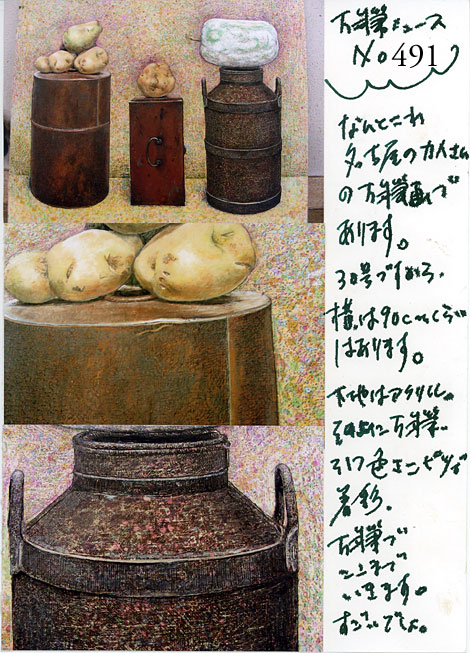 万年筆ニュース
No 491
なんとこれ
名古屋のカトさん
の万年筆画で
あります。
30号ですから、
横は90cmくらい
はあります。
下地はアクリル。
その上に万年筆。
そして色エンピツで
着彩。
万年筆で
ここまで
いきます。
すごいでしょ。